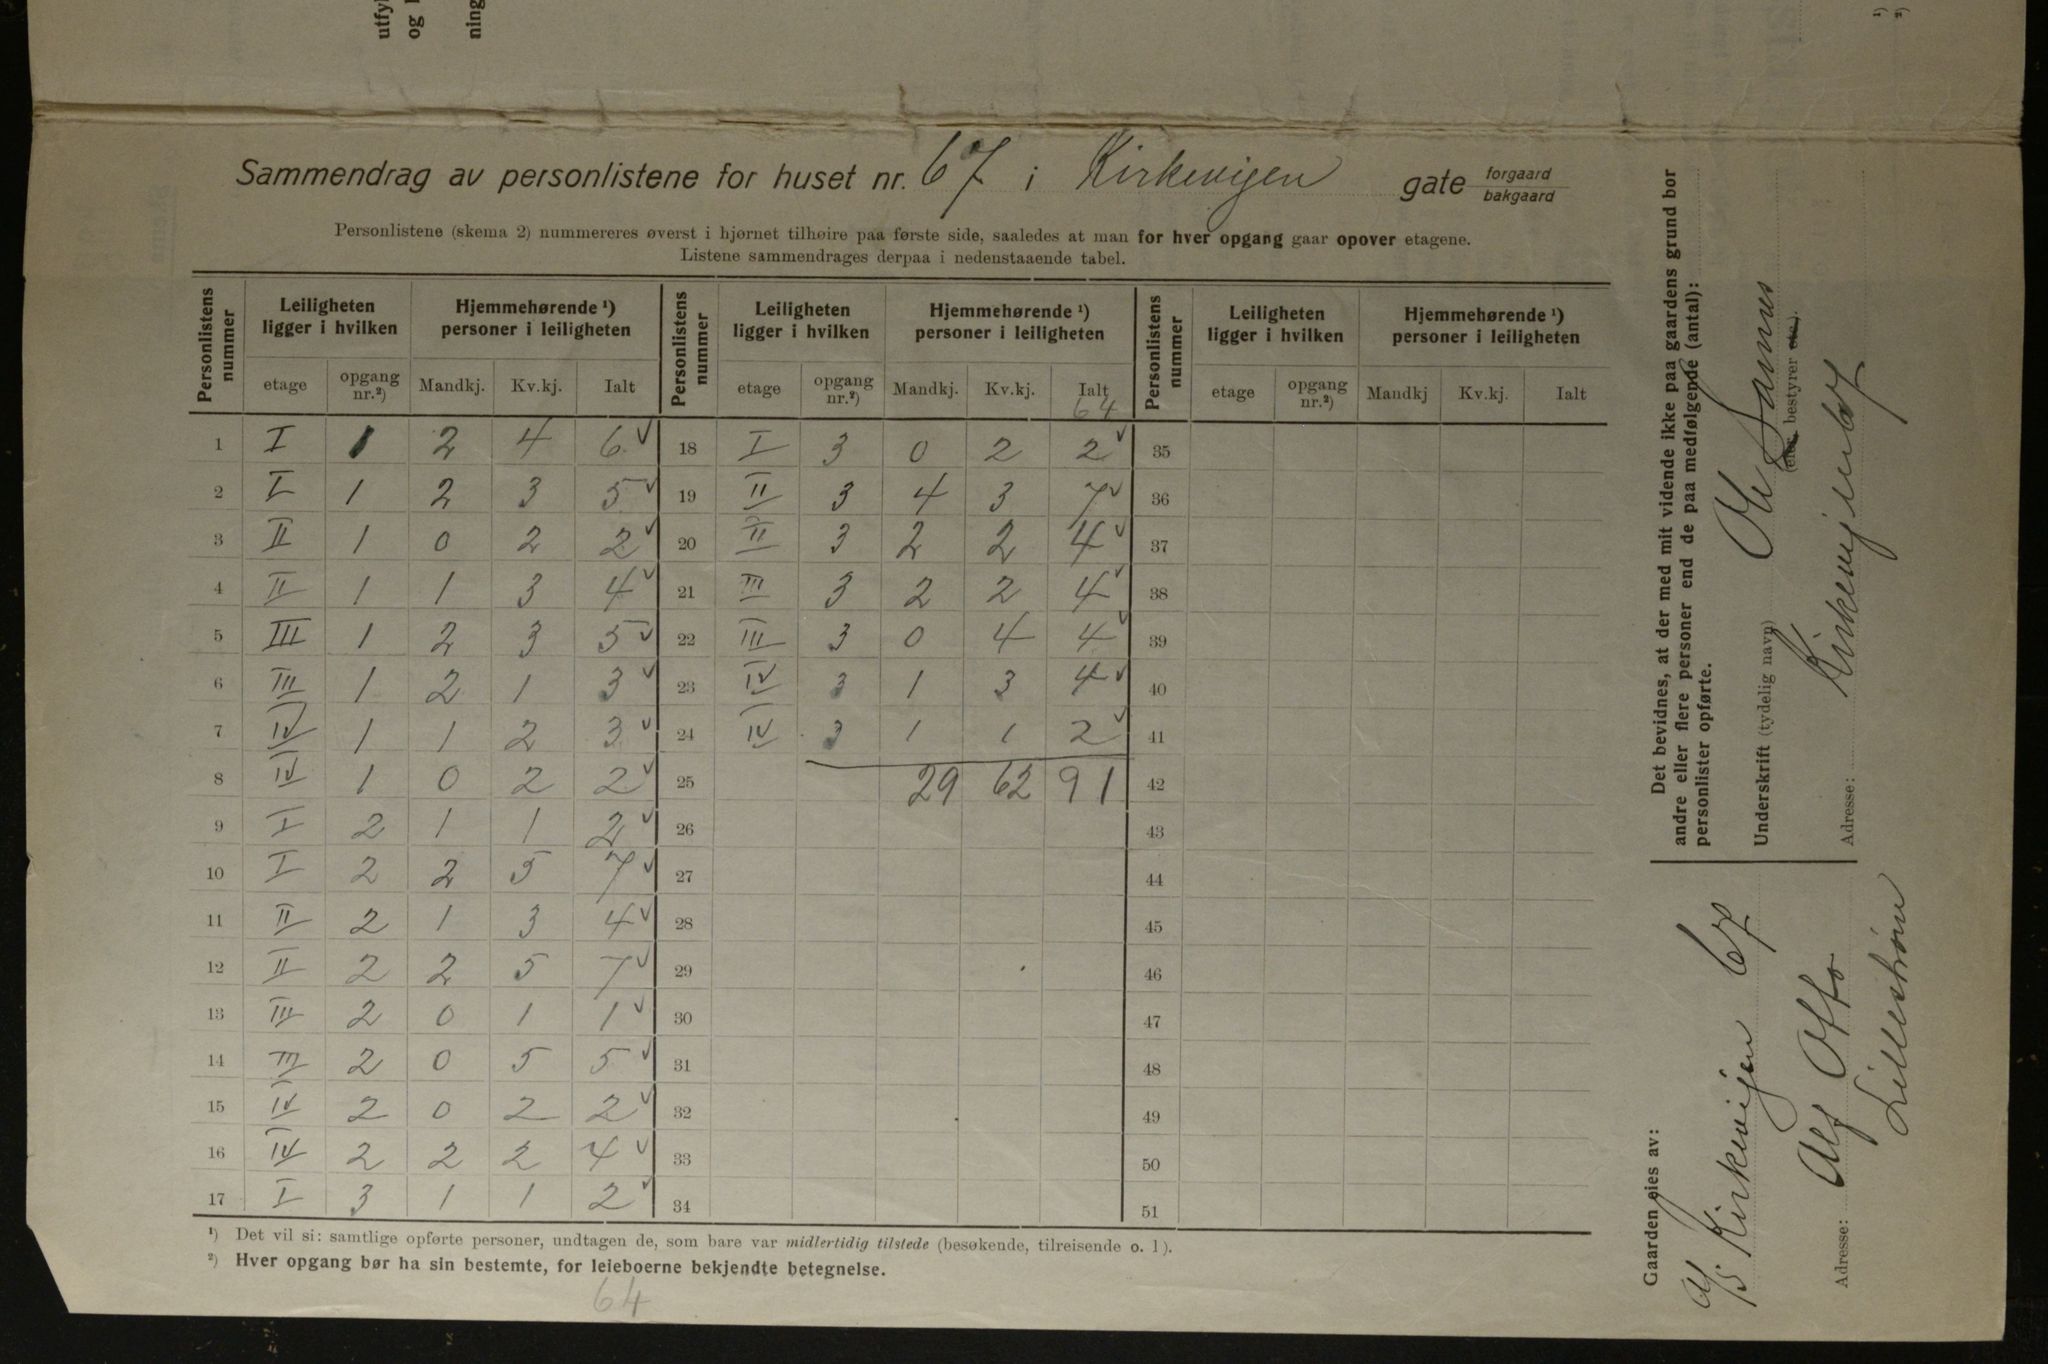 utfyl
og l
ning
Sammendrag av personlistene for huset nr. 67 i Kirkeveien gate forgaard bakgaard
Personlistene (skema 2) nummereres øverst i hjørnet tilhøire paa første side, saaledes at man for hver opgang gaar opover etagene.
Listene sammendrages derpaa i nedenstaaende tabel.
Personlistens nummer | Leiligheten ligger i hvilken | Hjemmehørende ¹) personer i leiligheten | Personlistens nummer | Leiligheten ligger i hvilken | Hjemmehørende ¹) personer i leiligheten | Personlistens nummer | Leiligheten ligger i hvilken | Hjemmehørende ¹) personer i leiligheten
etage | opgang nr.²) | Mandkj. | Kv.kj. | Ialt | etage | opgang nr.²) | Mandkj. | Kv.kj. | Ialt | etage | opgang nr.²) | Mandkj | Kv.kj. | Ialt
64
1 | I | 1 | 2 | 4 | 6 ✓ | 18 | I | 3 | 0 | 2 | 2 ✓ | 35
2 | I | 1 | 2 | 3 | 5 ✓ | 19 | II | 3 | 4 | 3 | 7 ✓ | 36
3 | II | 1 | 0 | 2 | 2 ✓ | 20 | II | 3 | 2 | 2 | 4 ✓ | 37
4 | II | 1 | 1 | 3 | 4 ✓ | 21 | III | 3 | 2 | 2 | 4 ✓ | 38
5 | III | 1 | 2 | 3 | 5 ✓ | 22 | III | 3 | 0 | 4 | 4 ✓ | 39
6 | III | 1 | 2 | 1 | 3 ✓ | 23 | IV | 3 | 1 | 3 | 4 ✓ | 40
7 | IV | 1 | 1 | 2 | 3 ✓ | 24 | IV | 3 | 1 | 1 | 2 ✓ | 41
8 | IV | 1 | 0 | 2 | 2 ✓ | 25 | 29 | 62 | 91 | 42
9 | I | 2 | 1 | 1 | 2 ✓ | 26 | 43
10 | I | 2 | 2 | 5 | 7 ✓ | 27 | 44
11 | II | 2 | 1 | 3 | 4 ✓ | 28 | 45
12 | II | 2 | 2 | 5 | 7 ✓ | 29 | 46
13 | III | 2 | 0 | 1 | 1 ✓ | 30 | 47
14 | III | 2 | 0 | 5 | 5 ✓ | 31 | 48
15 | IV | 2 | 0 | 2 | 2 ✓ | 32 | 49
16 | IV | 2 | 2 | 2 | 4 ✓ | 33 | 50
17 | I | 3 | 1 | 1 | 2 ✓ | 34 | 51
¹) Det vil si: samtlige opførte personer, undtagen de, som bare var midlertidig tilstede (besøkende, tilreisende o. l).
²) Hver opgang bør ha sin bestemte, for leieboerne bekjendte betegnelse.
64
Det bevidnes, at der med mit vidende ikke paa gaardens grund bor
andre eller flere personer end de paa medfølgende (antal):
personlister opførte.
Underskrift (tydelig navn) Ole
(eier, bestyrer etc.).
Adresse: Kirkeveien 67
Gaarden eies av:
A/S Kirkeveien 67
Adresse: Alf Otto
Lillestrøm
¹)
²)